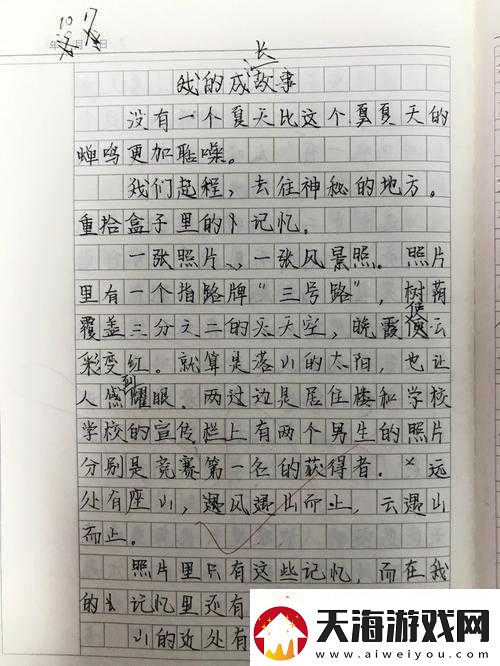 10 17
年 月 日
我的成长故事
没有一个夏天比这个夏夏天的
蝉鸣更加聒噪。
我们起程，去往神秘的地方。
重拾盒子里的记忆。
一张照片，一张风景照。照片
里有一个指路牌“三号路”，树荫
覆盖三分之二的天空，晚霞使云
彩变红。就算是落山的太阳，也让
人感到耀眼。两过边是居住楼和学校
学校的宣传栏上有两个男生的照片
分别是竞赛第一名的获得者。远
处有座山，遇风遇山而止，云遇山
而止。
照片里只有这些记忆，而在我
的记忆里还有
山的近处有
天海游戏网
www.aiweiyou.com